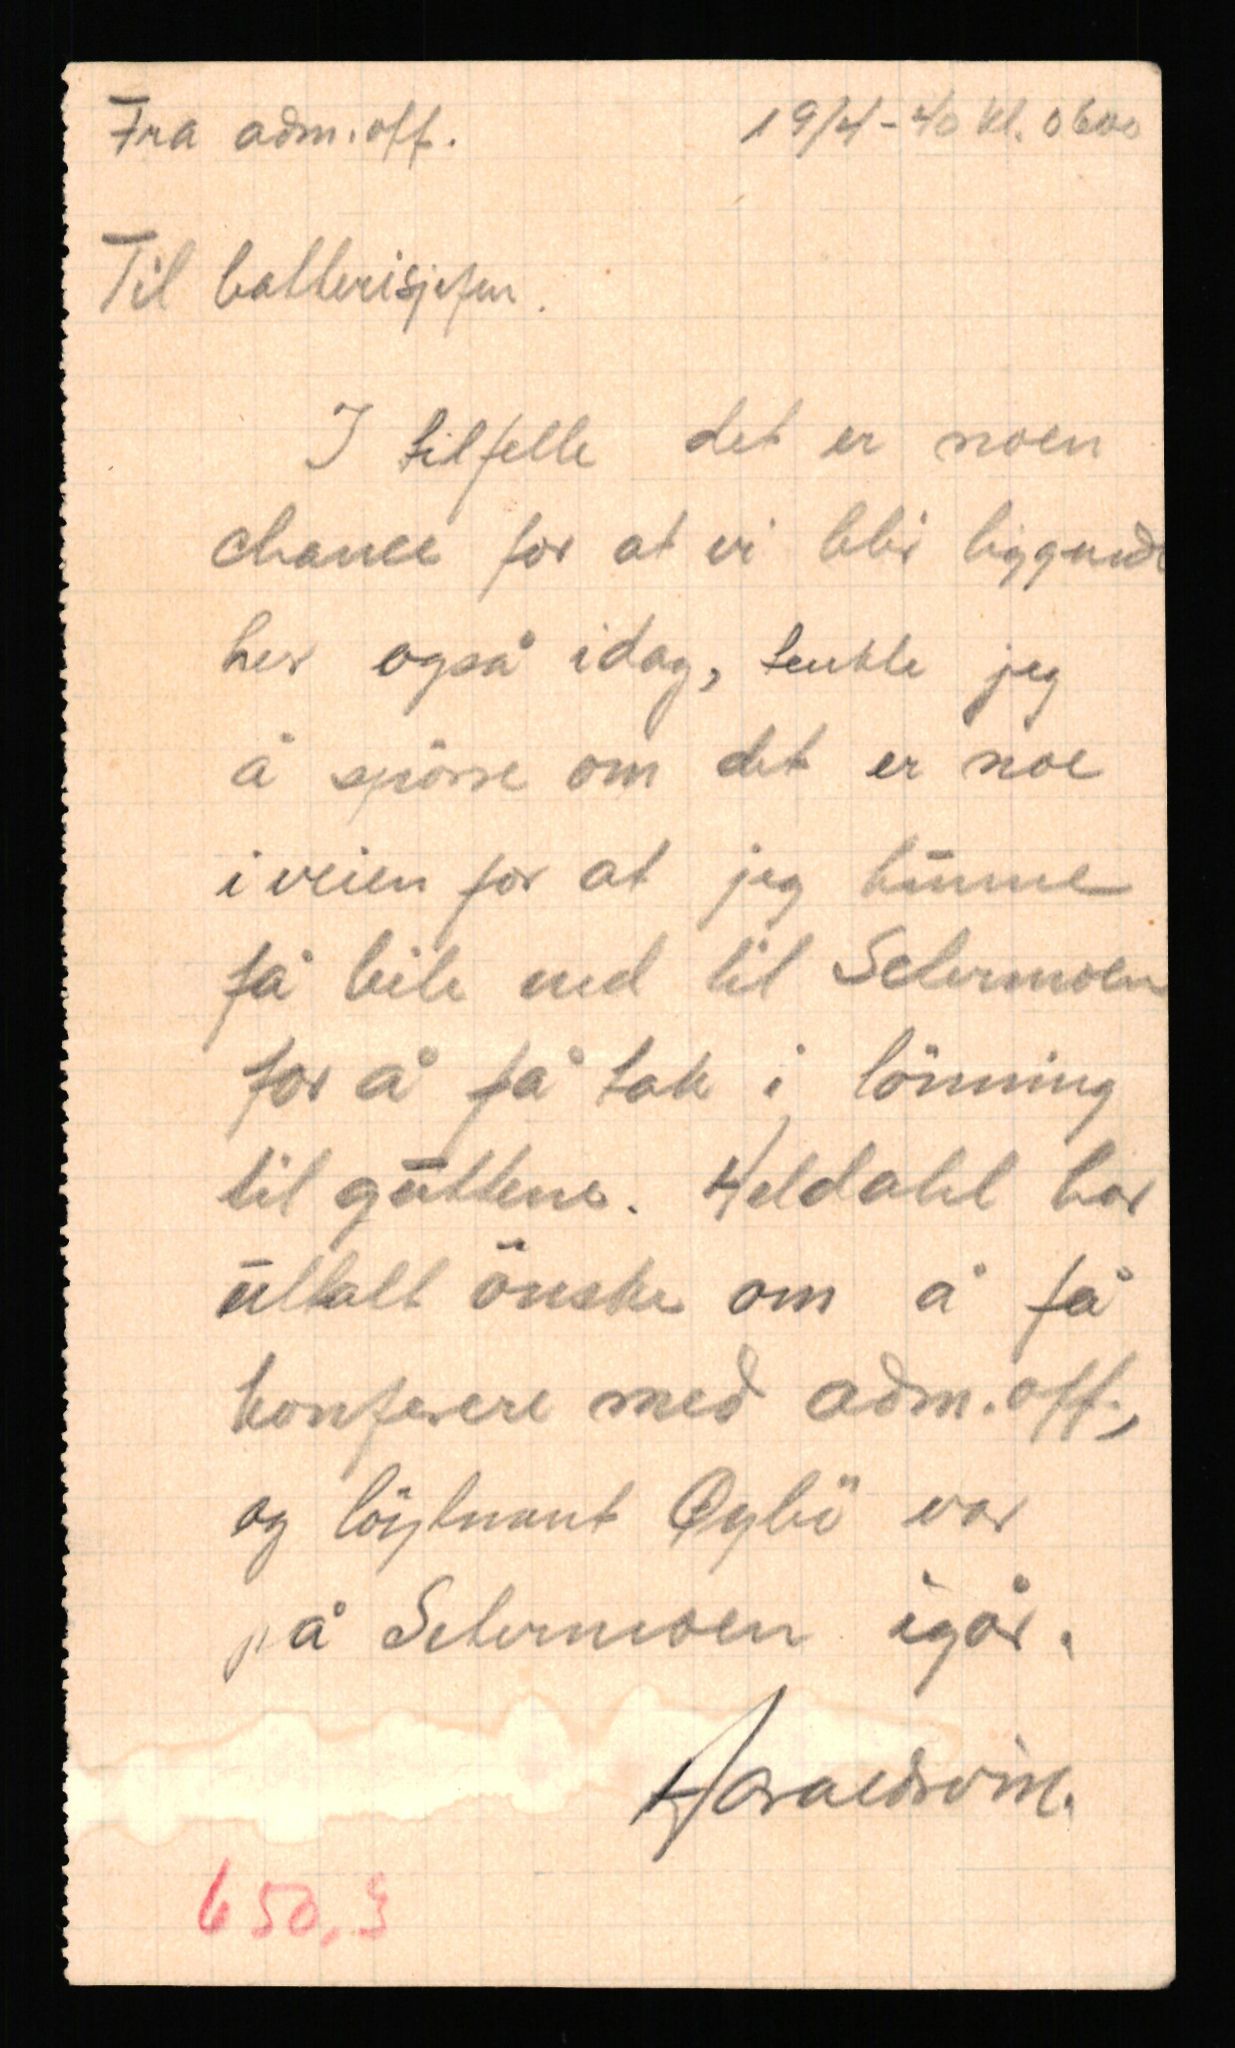 Fra adm.off. 19/4-40 kl. 0600
Til batterisjefen.
I tilfelle det er noen
chance for at vi blir liggende
her også idag, tenkte jeg
å spörre om det er noe
i veien for at jeg kunne
få bile ned til Setermoen
for å få tak i lönning
til guttene. Heldahl har
uttalt önske om å få
konferere med adm.off.,
og löytnant Öybö var
på Setermoen igår.
Haraldsvik.
650,3